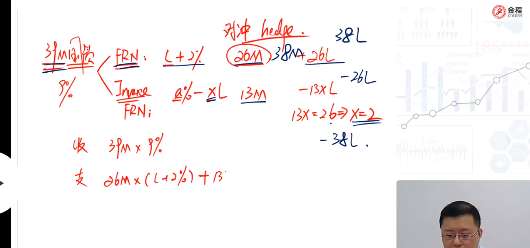 金程
对冲 hedge. 38L
39M 固债 FRN: L+2% 26M 38M+26L
9% -26L
Inverse FRN: a%-xL 13M -13XL
13X=26⇒X=2
-38L.
收 39M×9%
支 26M×(L+2%)+13